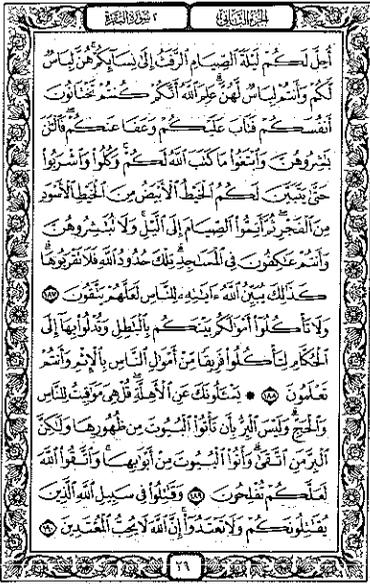 الجزء الثاني
٢ سورة البقرة
أُحِلَّ لَكُمْ لَيْلَةَ ٱلصِّيَامِ ٱلرَّفَثُ إِلَىٰ نِسَآئِكُمْ ۚ هُنَّ لِبَاسٌ
لَّكُمْ وَأَنتُمْ لِبَاسٌ لَّهُنَّ ۗ عَلِمَ ٱللَّهُ أَنَّكُمْ كُنتُمْ تَخْتَانُونَ
أَنفُسَكُمْ فَتَابَ عَلَيْكُمْ وَعَفَا عَنكُمْ ۖ فَٱلْـَٰٔنَ
بَـٰشِرُوهُنَّ وَٱبْتَغُوا۟ مَا كَتَبَ ٱللَّهُ لَكُمْ ۚ وَكُلُوا۟ وَٱشْرَبُوا۟
حَتَّىٰ يَتَبَيَّنَ لَكُمُ ٱلْخَيْطُ ٱلْأَبْيَضُ مِنَ ٱلْخَيْطِ ٱلْأَسْوَدِ
مِنَ ٱلْفَجْرِ ۖ ثُمَّ أَتِمُّوا۟ ٱلصِّيَامَ إِلَى ٱلَّيْلِ ۚ وَلَا تُبَـٰشِرُوهُنَّ
وَأَنتُمْ عَـٰكِفُونَ فِى ٱلْمَسَـٰجِدِ ۗ تِلْكَ حُدُودُ ٱللَّهِ فَلَا تَقْرَبُوهَا ۗ
كَذَٰلِكَ يُبَيِّنُ ٱللَّهُ ءَايَـٰتِهِۦ لِلنَّاسِ لَعَلَّهُمْ يَتَّقُونَ ١٨٧
وَلَا تَأْكُلُوٓا۟ أَمْوَٰلَكُم بَيْنَكُم بِٱلْبَـٰطِلِ وَتُدْلُوا۟ بِهَآ إِلَى
ٱلْحُكَّامِ لِتَأْكُلُوا۟ فَرِيقًا مِّنْ أَمْوَٰلِ ٱلنَّاسِ بِٱلْإِثْمِ وَأَنتُمْ
تَعْلَمُونَ ١٨٨ ۞ يَسْـَٔلُونَكَ عَنِ ٱلْأَهِلَّةِ ۖ قُلْ هِىَ مَوَٰقِيتُ لِلنَّاسِ
وَٱلْحَجِّ ۗ وَلَيْسَ ٱلْبِرُّ بِأَن تَأْتُوا۟ ٱلْبُيُوتَ مِن ظُهُورِهَا وَلَـٰكِنَّ
ٱلْبِرَّ مَنِ ٱتَّقَىٰ ۗ وَأْتُوا۟ ٱلْبُيُوتَ مِنْ أَبْوَٰبِهَا ۚ وَٱتَّقُوا۟ ٱللَّهَ
لَعَلَّكُمْ تُفْلِحُونَ ١٨٩ وَقَـٰتِلُوا۟ فِى سَبِيلِ ٱللَّهِ ٱلَّذِينَ
يُقَـٰتِلُونَكُمْ وَلَا تَعْتَدُوٓا۟ ۚ إِنَّ ٱللَّهَ لَا يُحِبُّ ٱلْمُعْتَدِينَ ١٩٠
٢٩